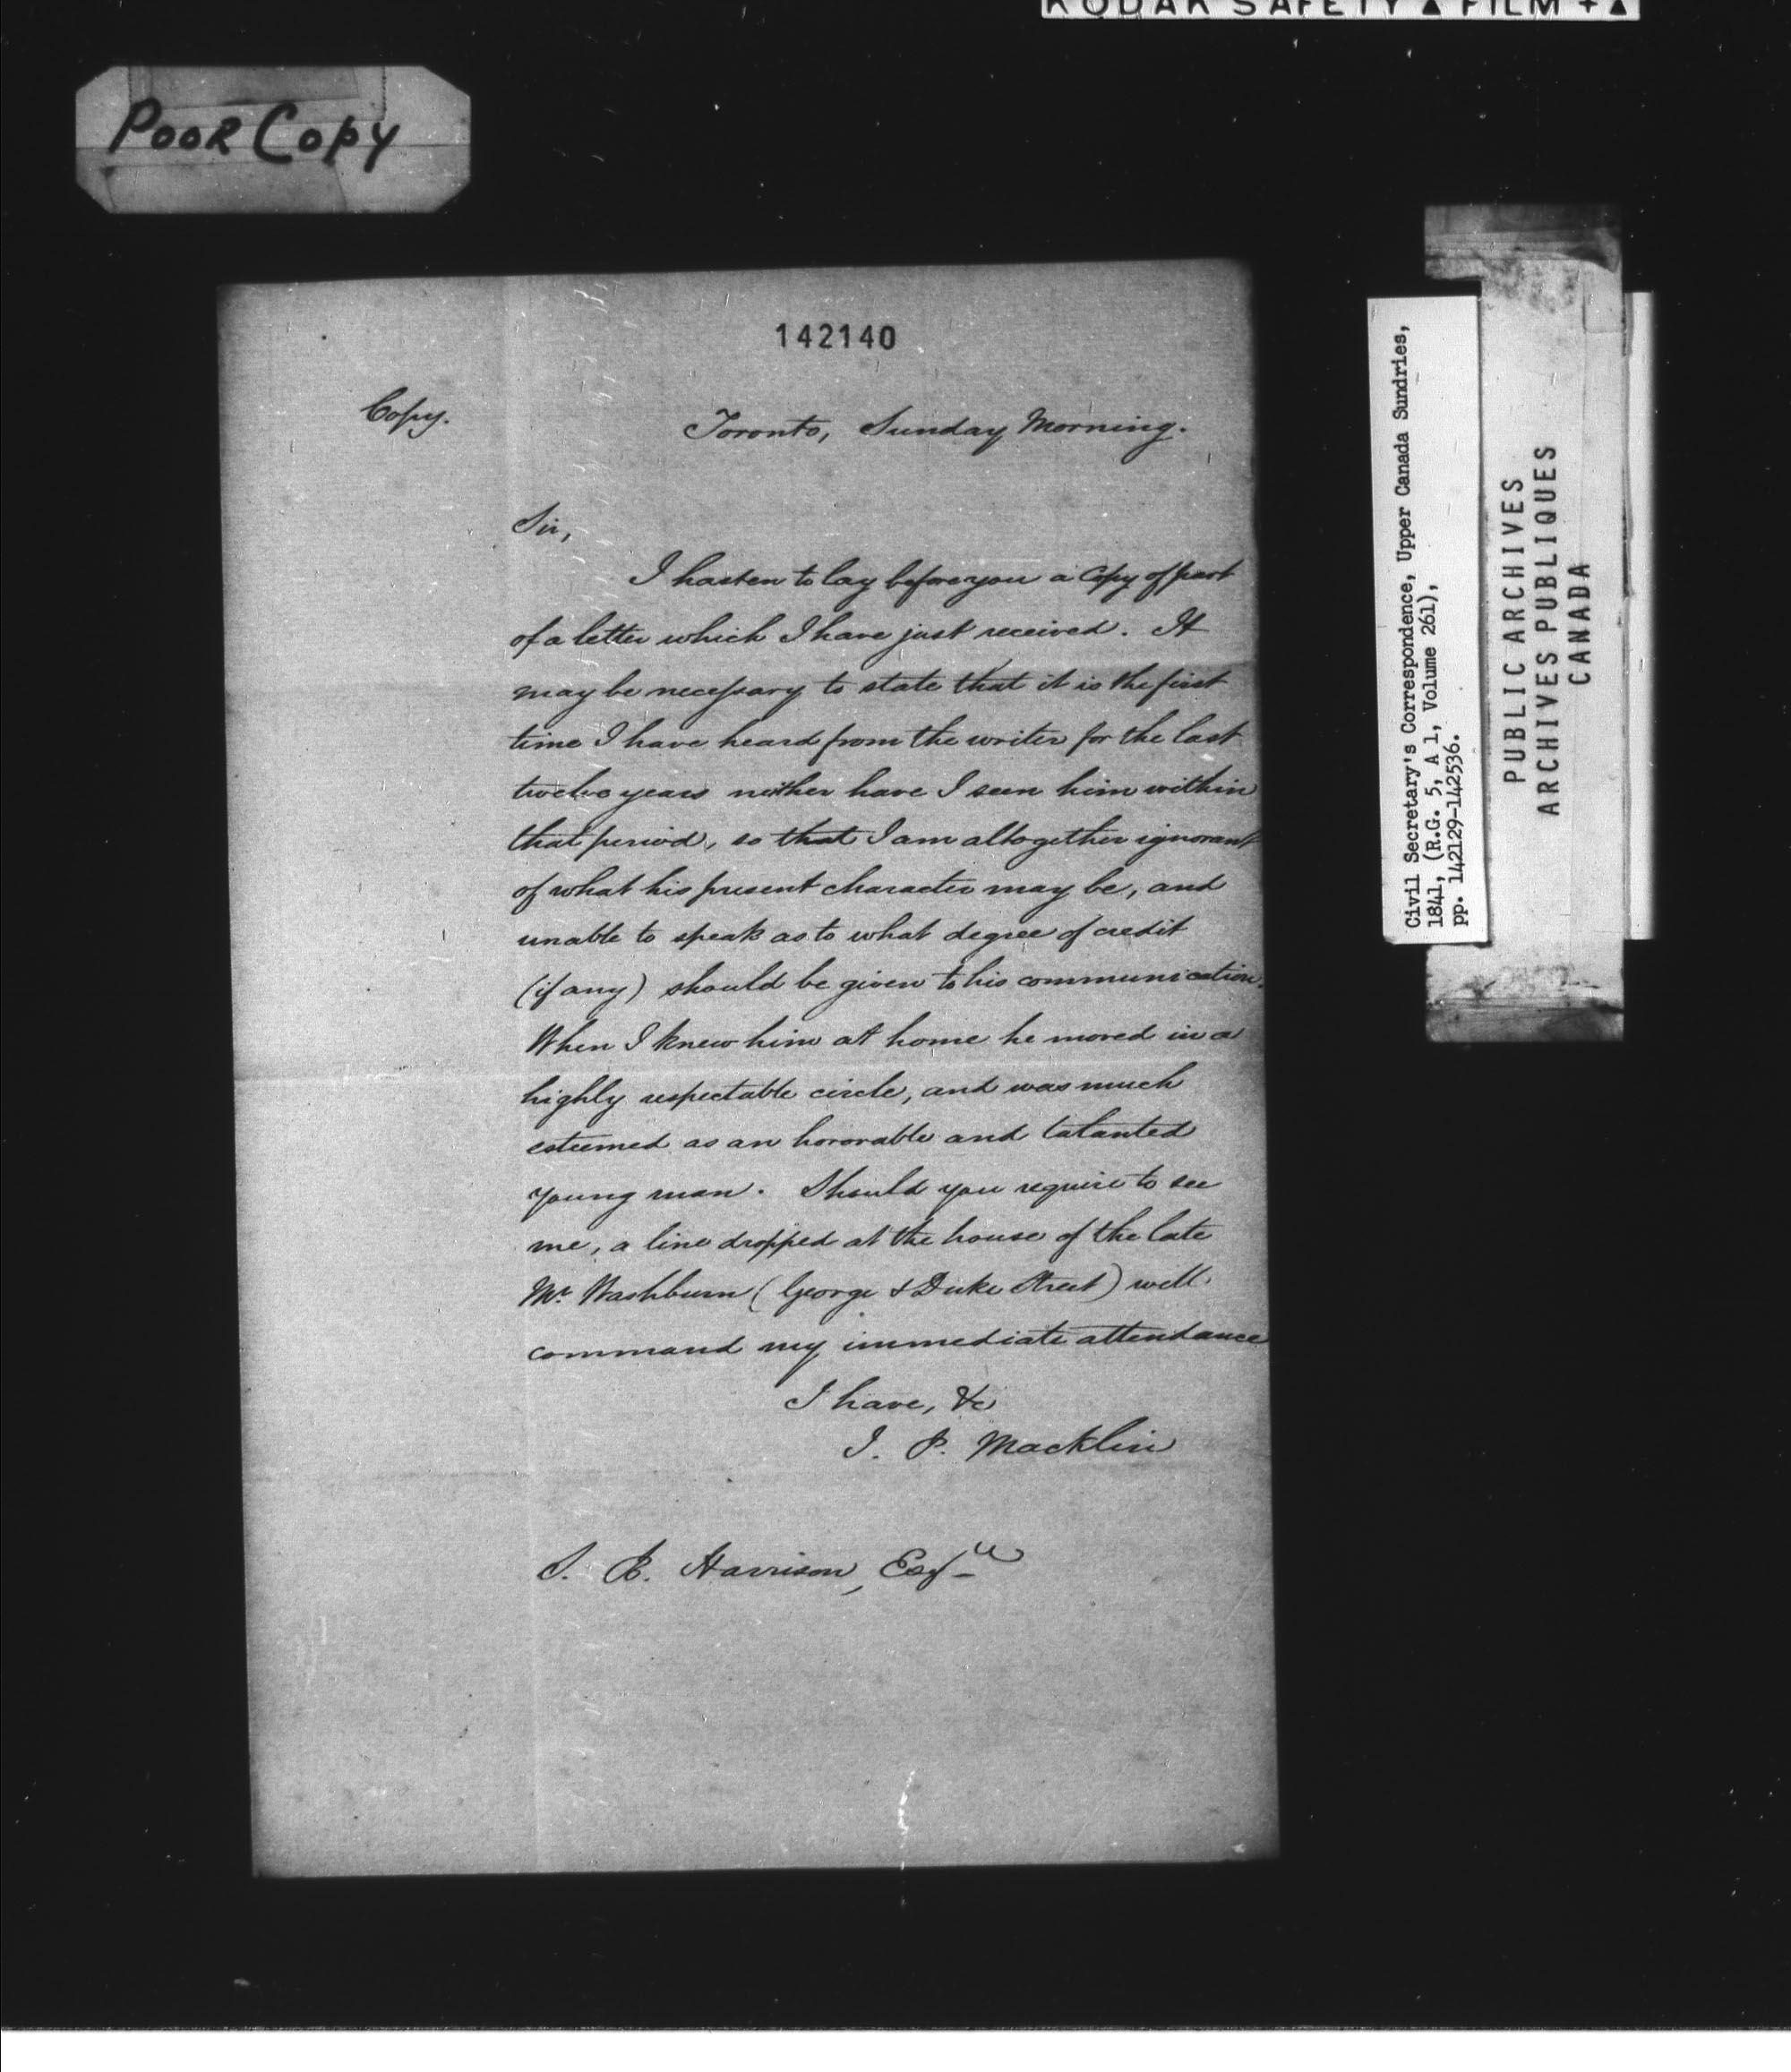 KODAK SAFETY ▲ FILM + ▲
POOR COPY
142140
Copy.
Toronto, Sunday Morning.
Sir,
I hasten to lay before you a Copy of part
of a letter which I have just received. It
may be necessary to state that it is the first
time I have heard from the writer for the last
twelve years neither have I seen him within
that period, so that I am altogether ignorant
of what his present character may be, and
unable to speak as to what degree of credit
(if any) should be given to his communication.
When I knew him at home he moved in a
highly respectable circle, and was much
esteemed as an honorable and talanted
young man. Should you require to see
me, a line dropped at the house of the late
Mr. Washburn (George & Duke Street) will
command my immediate attendance
I have, &c
J. P. Macklin
S. B. Harrison, Esqre
Civil Secretary's Correspondence, Upper Canada Sundries,
1841, (R.G. 5, A 1, Volume 261),
pp. 142129-142536.
PUBLIC ARCHIVES
ARCHIVES PUBLIQUES
CANADA